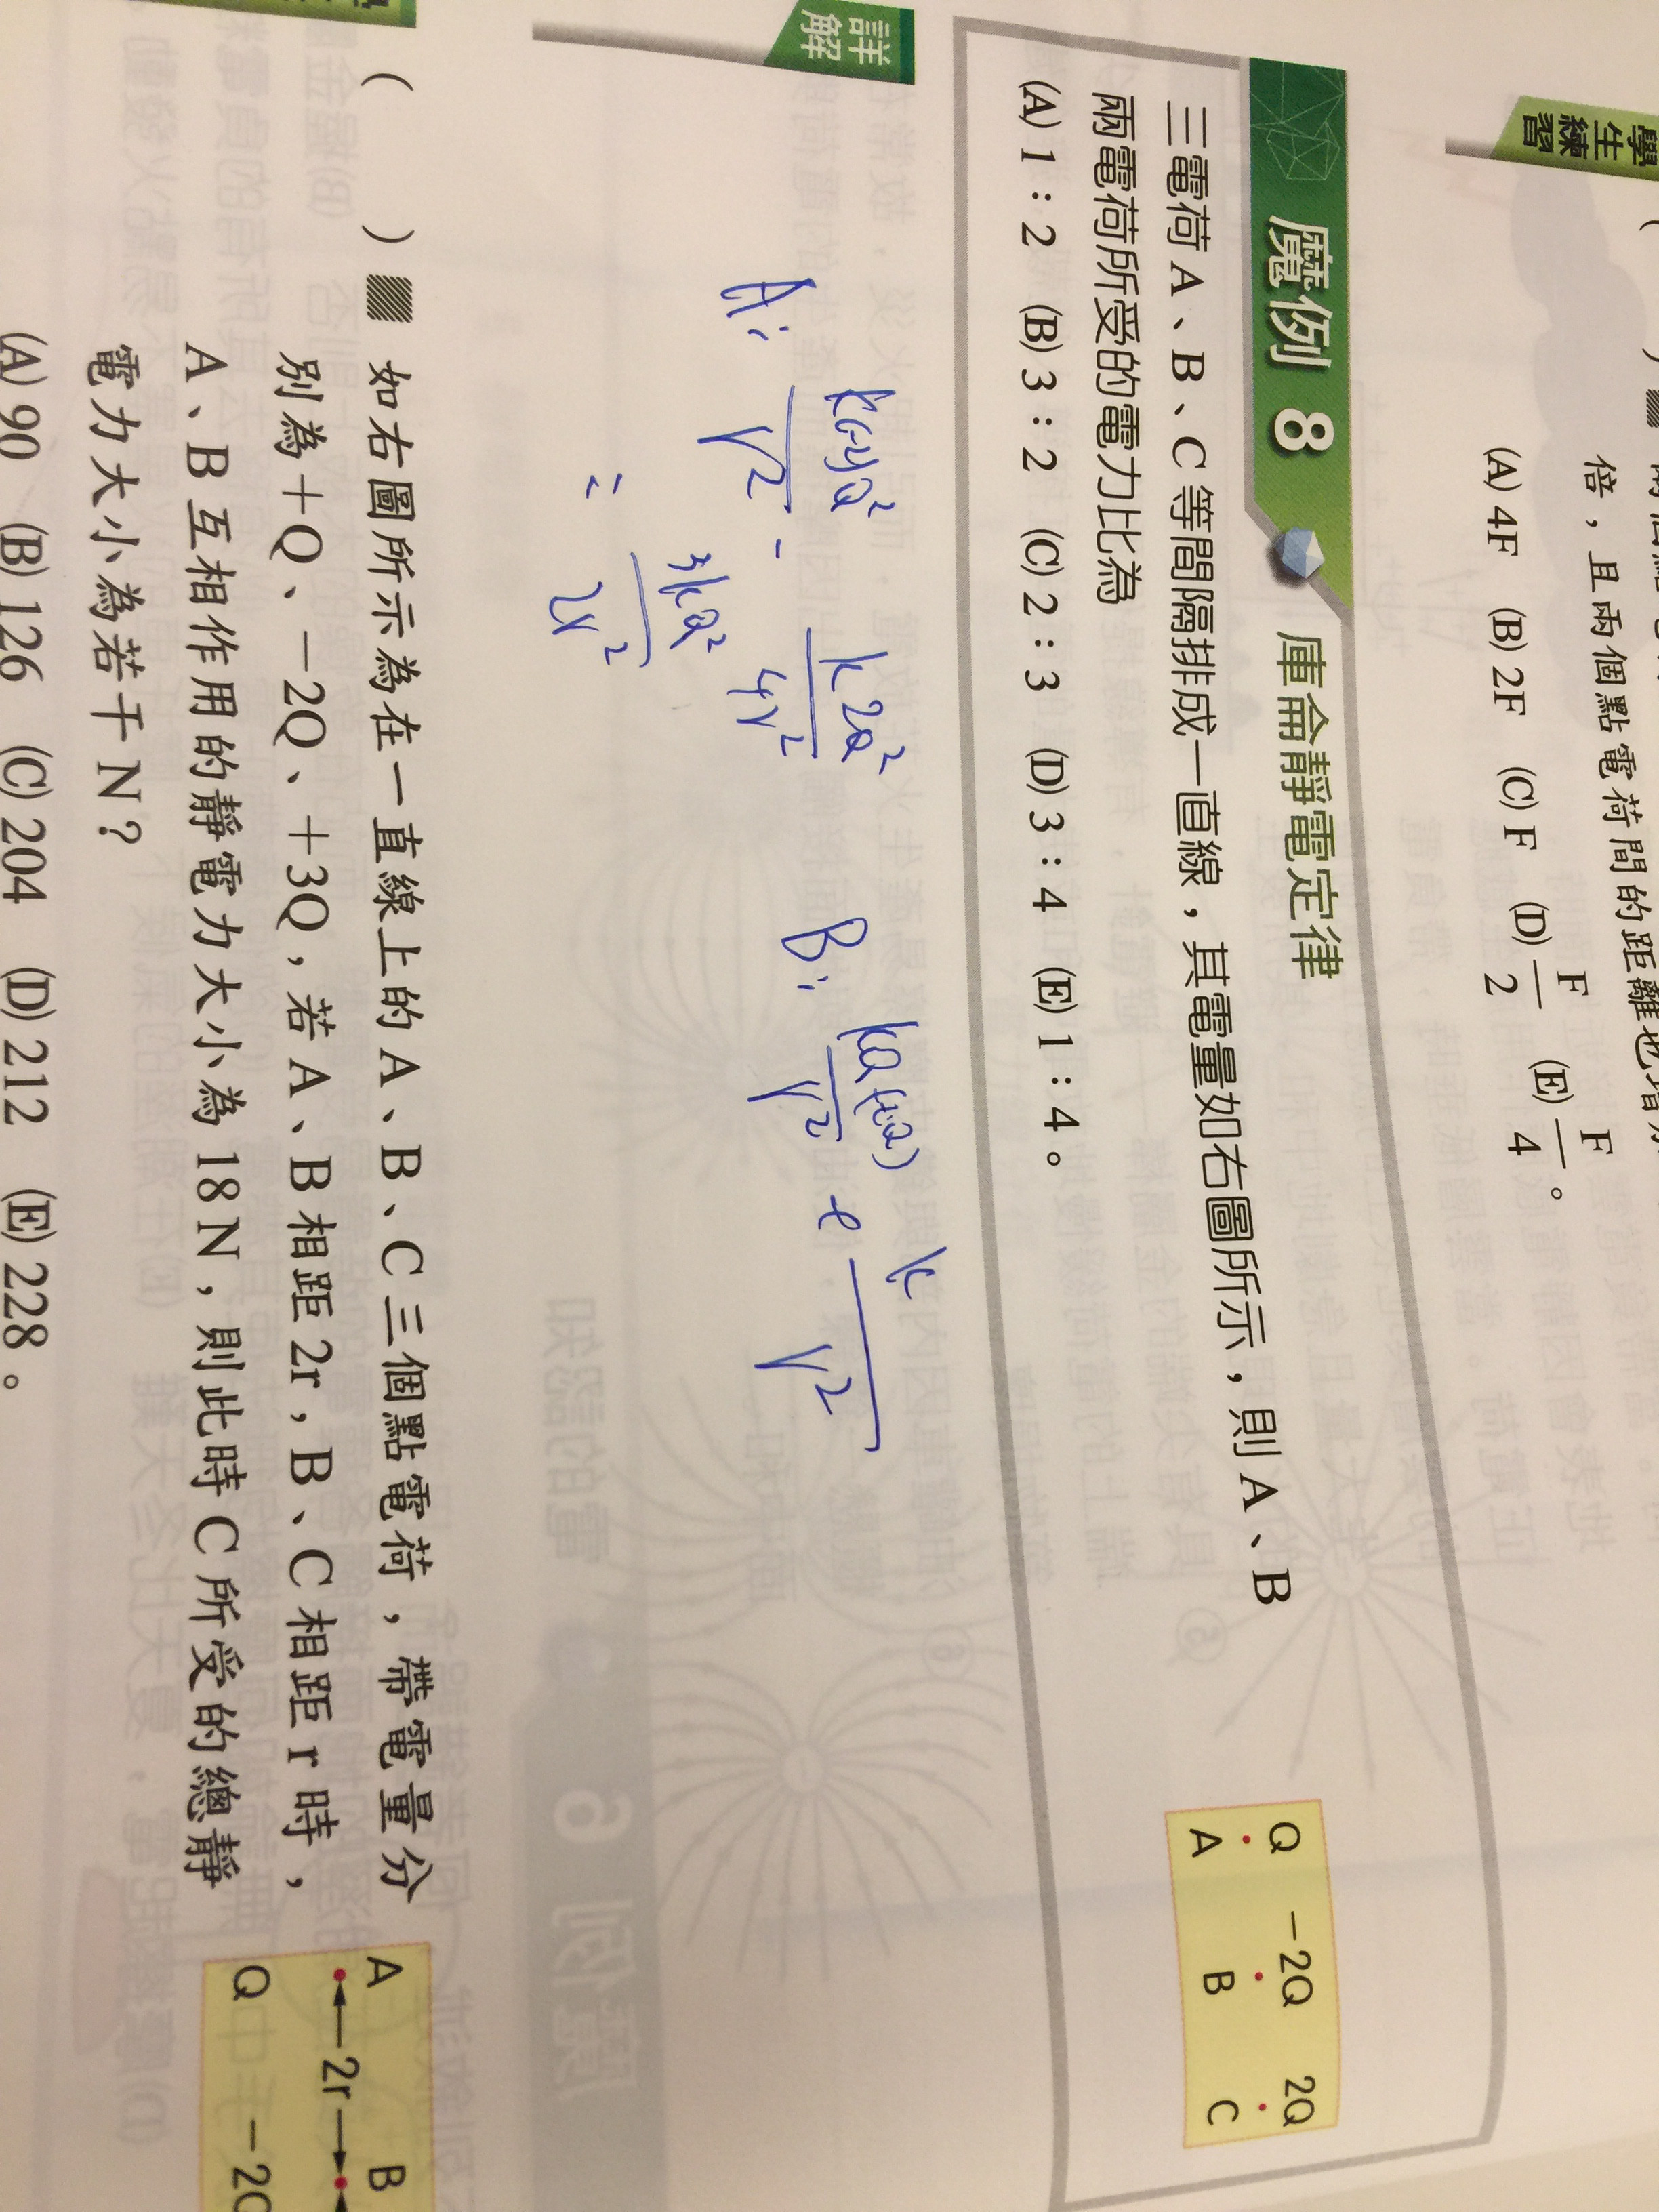 學生練習
倍，且兩個點電荷間的距離也增加
(A) 4F (B) 2F (C) F (D) F/2 (E) F/4 。
魔例 8 庫侖靜電定律
三電荷 A、B、C 等間隔排成一直線，其電量如右圖所示，則 A、B
兩電荷所受的電力比為
(A) 1：2 (B) 3：2 (C) 2：3 (D) 3：4 (E) 1：4。
Q −2Q 2Q
A B C
詳解
A:
k 2Q²
4r²
3kQ²
2r²
B:
r²
k
r²
( ) 如右圖所示為在一直線上的 A、B、C 三個點電荷，帶電量分
別為＋Q、－2Q、＋3Q，若 A、B 相距 2r，B、C 相距 r 時，
A、B 互相作用的靜電力大小為 18 N，則此時 C 所受的總靜
電力大小為若干 N？
(A) 90 (B) 126 (C) 204 (D) 212 (E) 228。
A B
2r
Q